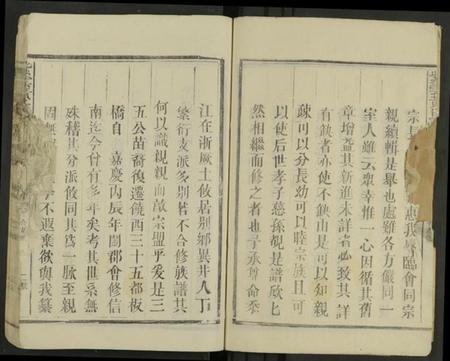 宗長 惠我 臨會同宗
親續輯是舉也處雖各方嚴同一
室人雖 衆幸惟一心因循其舊
章增益其新進未詳者必致其詳
有缺者亦使不缺山是可以知親
疎可以分長幼可以睦宗族且可
以使后世孝子慈孫覩是譜欣匕
然相繼而修之者也予承尊命忝
江在浙厥土攸居别鄉異井人丁
繁衍支派多别若不合修族譜其
何以識親親而敵宗盟乎爰是三
五公苗裔復遷饒西三十五都板
橋自 嘉慶丙辰年閤郡會修信
南迄今廿有多年矣考其世系無
殊稽其分派攸同其爲一脉至親
固無 不遐棄欲與我纂